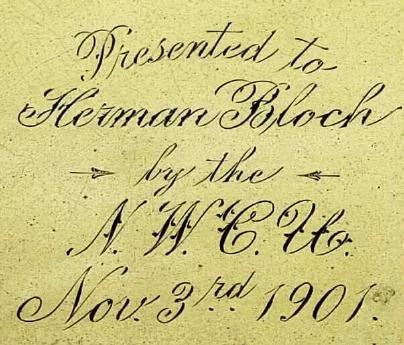 Presented to
Herman Bloch
by the
N. W. C. U.
Nov. 3rd 1901.